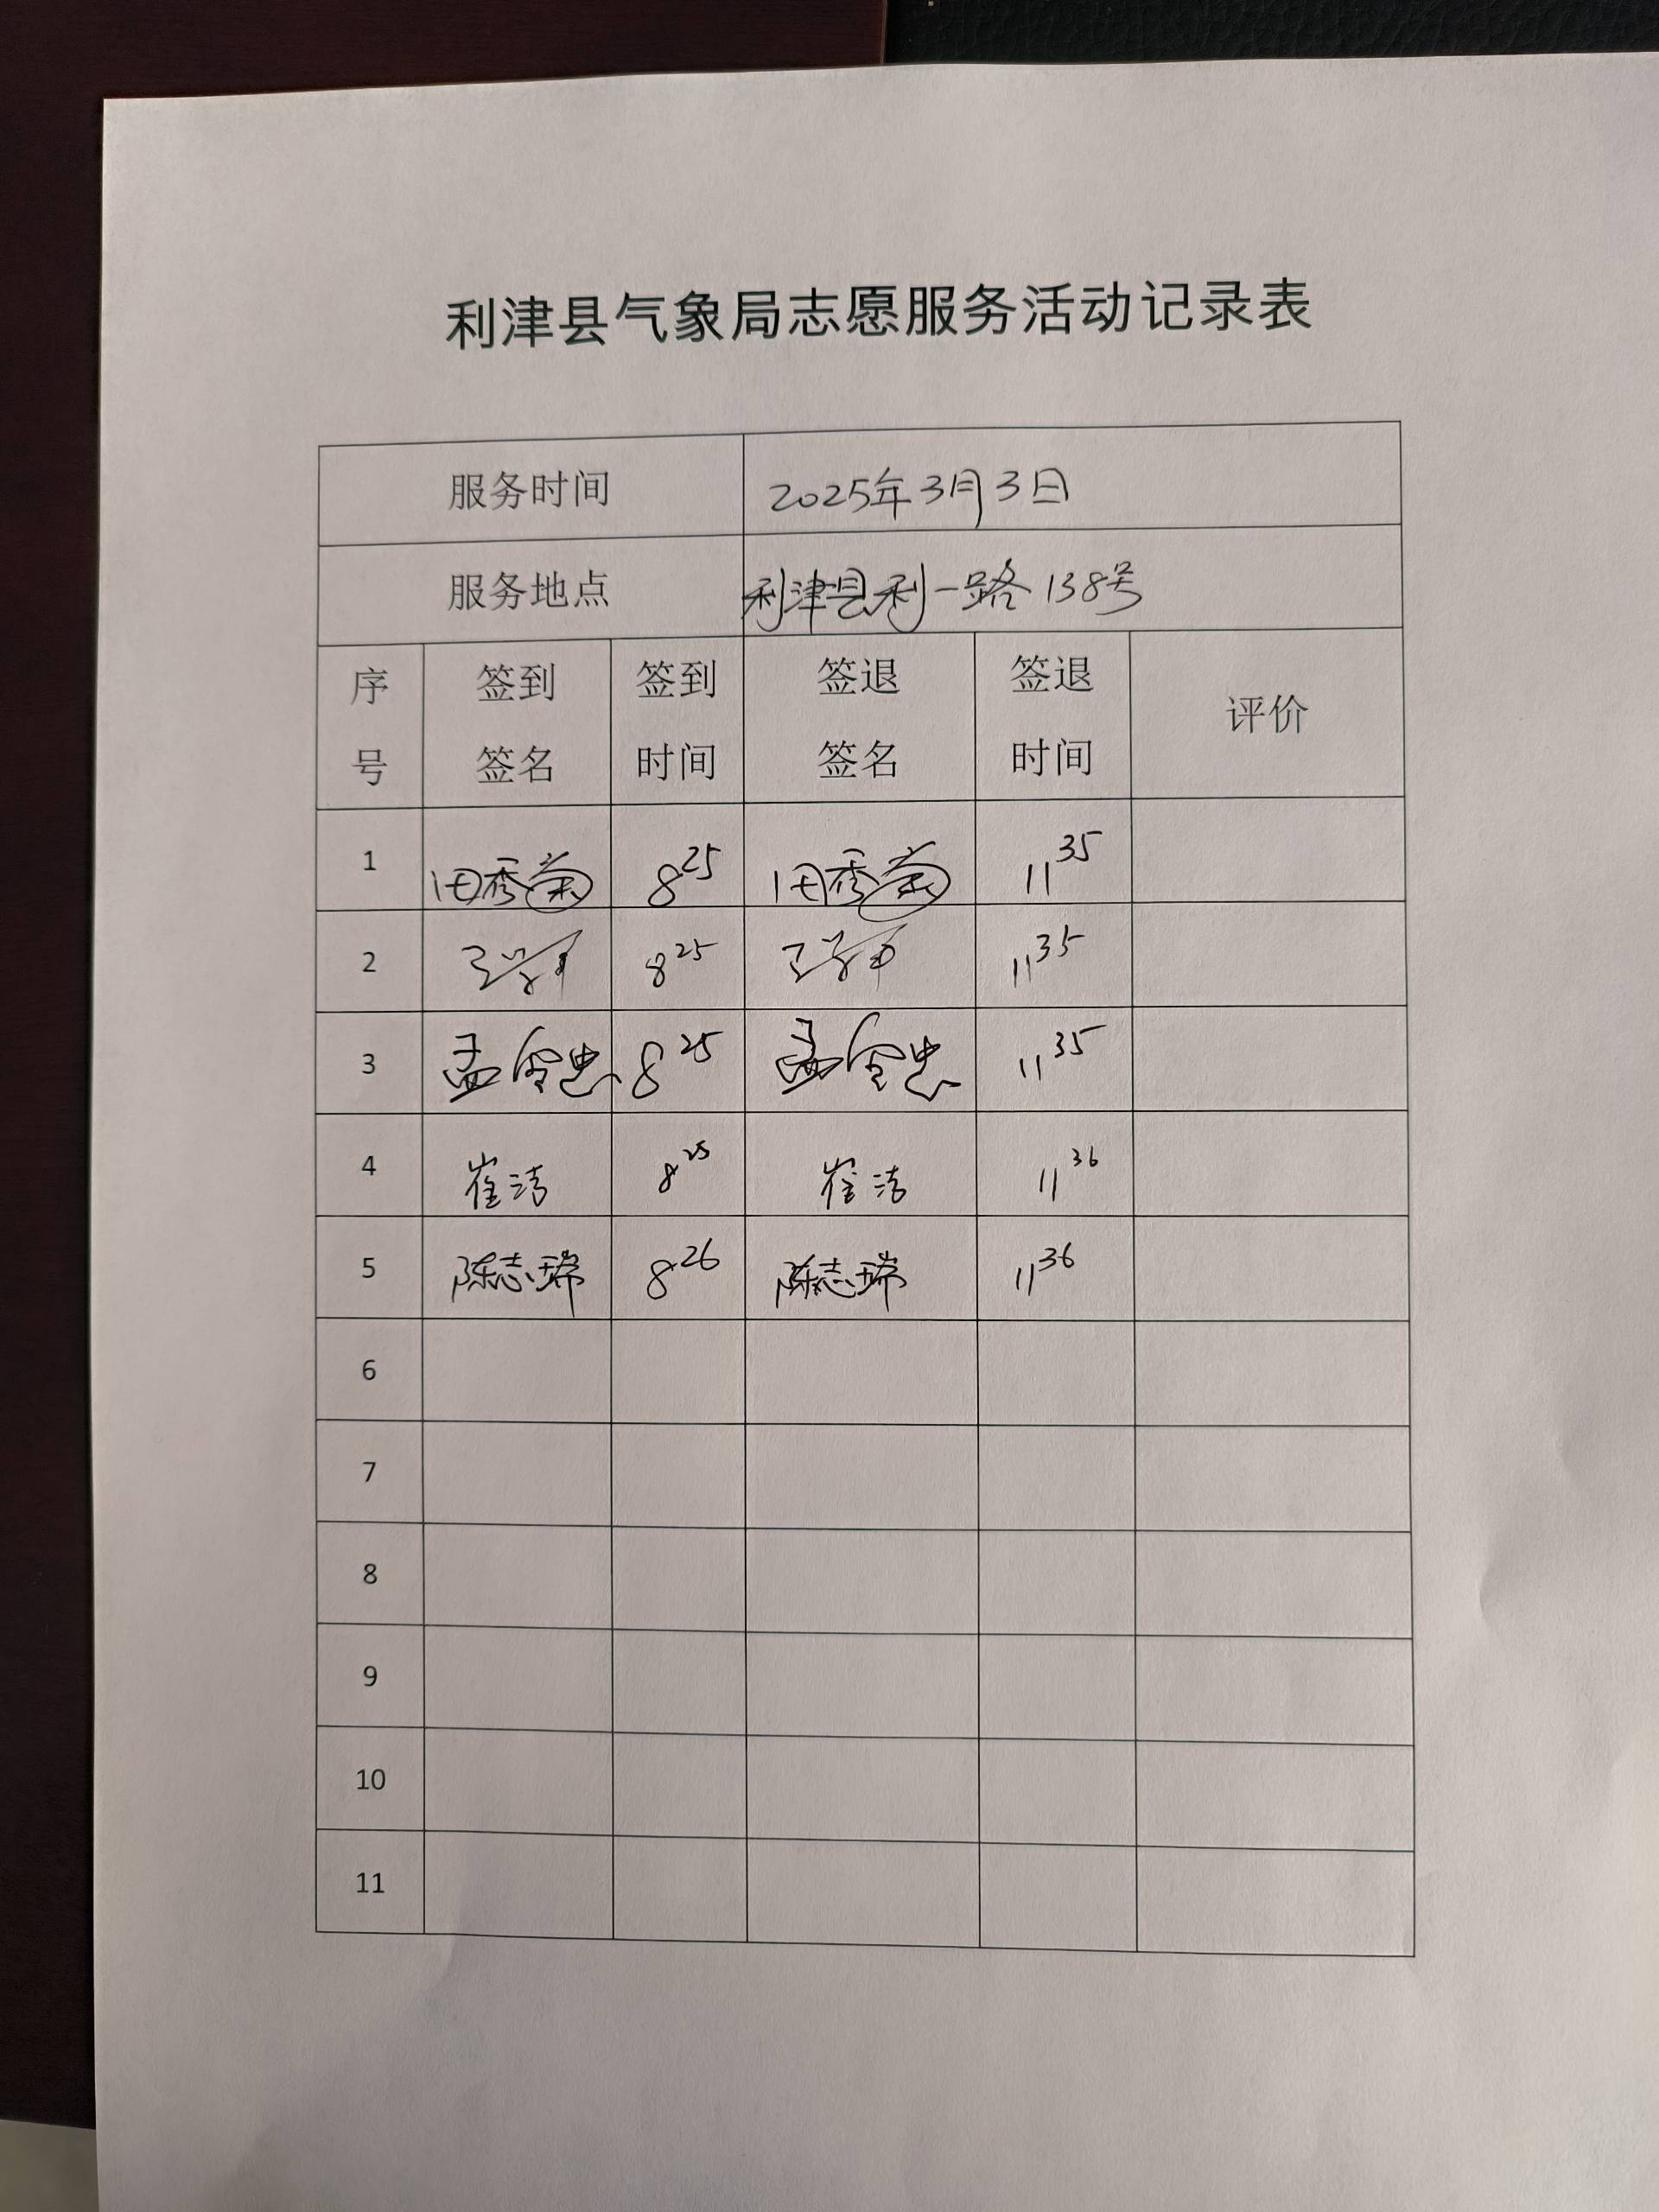 利津县气象局志愿服务活动记录表
服务时间 2025年3月3日
服务地点 利津县利一路138号
序号 签到签名 签到时间 签退签名 签退时间 评价
1 田秀菊 8 25 田秀菊 11 35
2 8 25 11 35
3 孟令忠 8 25 孟令忠 11 35
4 崔洁 8 25 崔洁 11 36
5 陈志瑞 8 26 陈志瑞 11 36
6
7
8
9
10
11